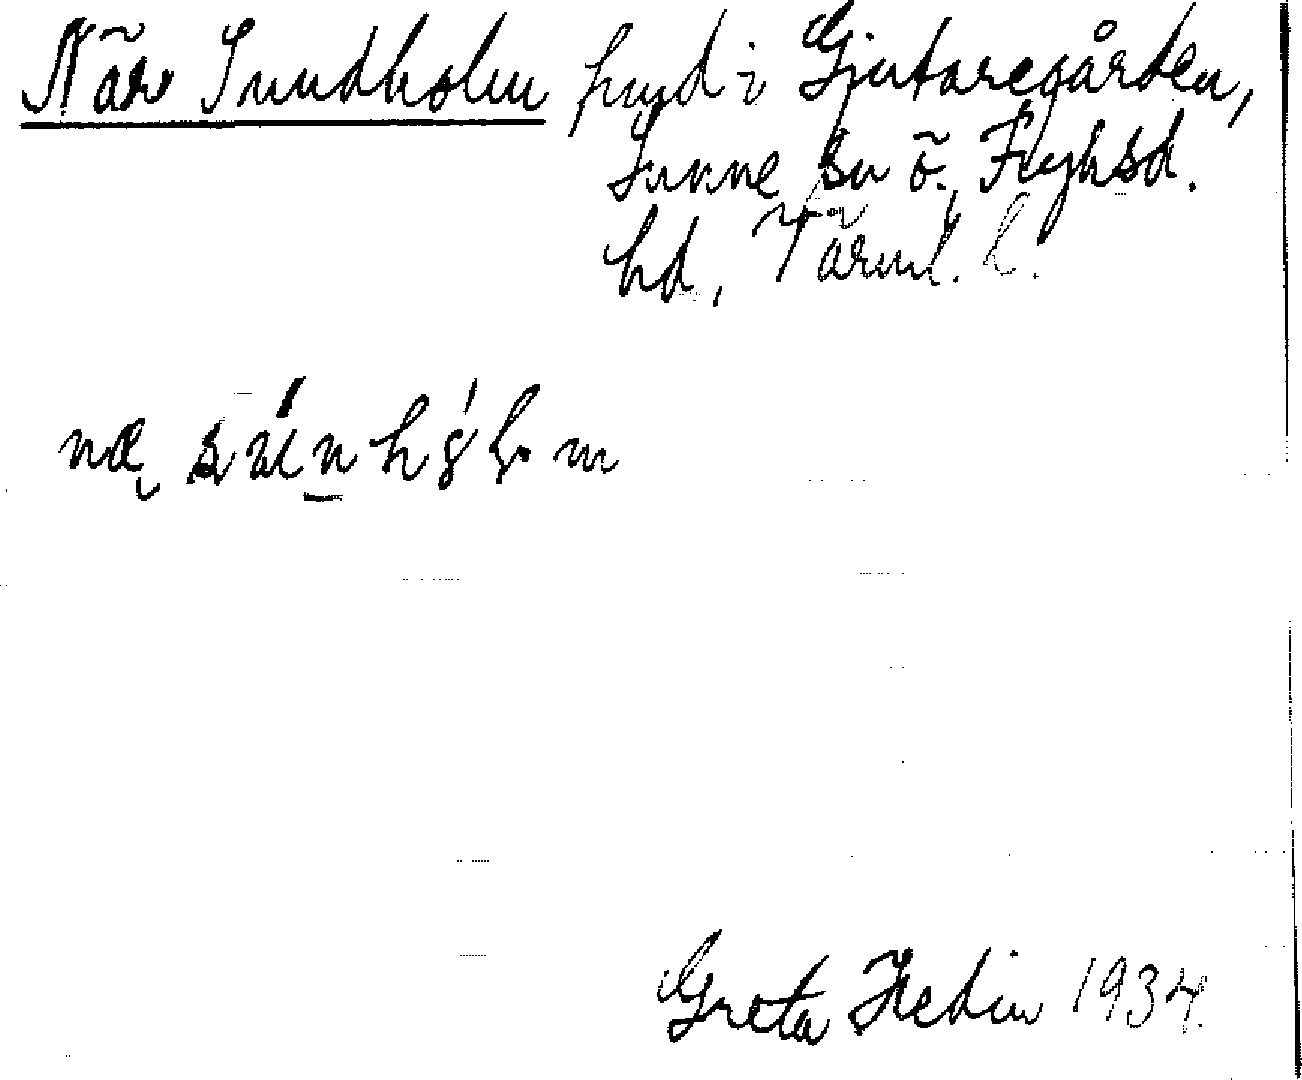 När Sundholm hvgd i Gjutaregården,
Sunne sn ö. Fryksd.
hd, Värml. l.
Greta Hedin 1934.